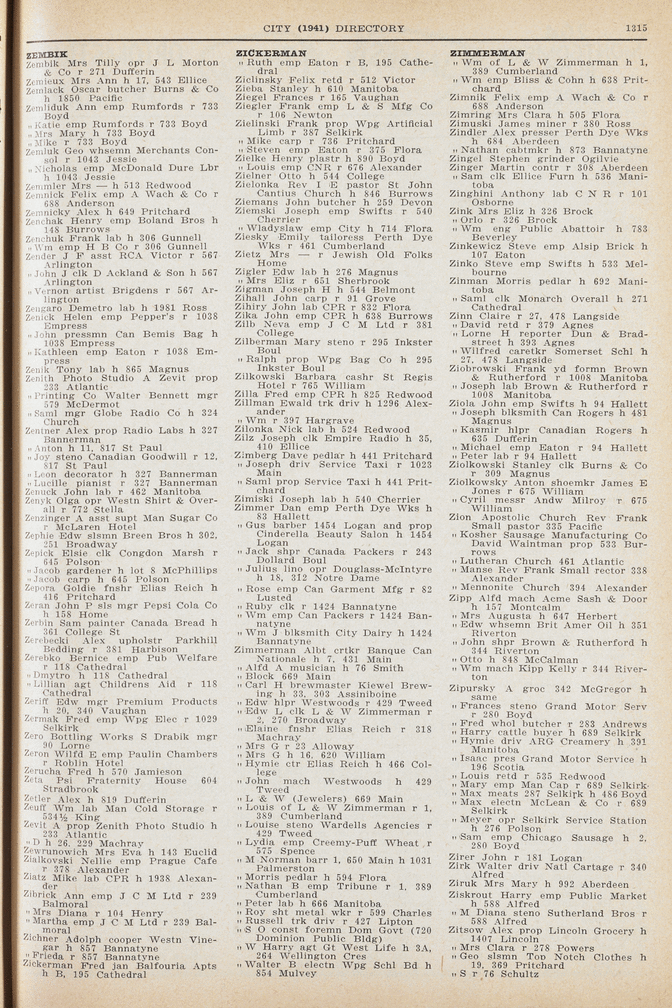 CITY (1941) DIRECTORY
1315
ZEMBIK
Zembik Mrs Tilly opr J L Morton
& Co r 271 Dufferin
Zemieux Mrs Ann h 17, 543 Ellice
Zemlack Oscar butcher Burns & Co
h 1850 Pacific
Zemliduk Ann emp Rumfords r 733
Boyd
" Katie emp Rumfords r 733 Boyd
" Mrs Mary h 733 Boyd
" Mike r 733 Boyd
Zemluk Geo whsemn Merchants Con-
sol r 1043 Jessie
" Nicholas emp McDonald Dure Lbr
h 1043 Jessie
Zemmler Mrs — h 513 Redwood
Zemnick Felix emp A Wach & Co r
688 Anderson
Zemnicky Alex h 649 Pritchard
Zenchak Henry emp Boland Bros h
148 Burrows
Zenchuk Frank lab h 306 Gunnell
" Wm emp H B Co r 306 Gunnell
Zender J F asst RCA Victor r 567
Arlington
" John J clk D Ackland & Son h 567
Arlington
" Vernon artist Brigdens r 567 Ar-
lington
Zengaro Demetro lab h 1981 Ross
Zenick Helen emp Pepper's r 1038
Empress
" John pressmn Can Bemis Bag h
1038 Empress
" Kathleen emp Eaton r 1038 Em-
press
Zenik Tony lab h 865 Magnus
Zenith Photo Studio A Zevit prop
233 Atlantic
" Printing Co Walter Bennett mgr
579 McDermot
" Saml mgr Globe Radio Co h 324
Church
Zentner Alex prop Radio Labs h 327
Bannerman
" Anton h 11, 817 St Paul
" Joy steno Canadian Goodwill r 12,
817 St Paul
" Leon decorator h 327 Bannerman
" Lucille pianist r 327 Bannerman
Zenuck John lab r 462 Manitoba
Zenyk Olga opr Westn Shirt & Over-
all r 772 Stella
Zenzinger A asst supt Man Sugar Co
r McLaren Hotel
Zephie Edw slsmn Breen Bros h 302,
251 Broadway
Zepick Elsie clk Congdon Marsh r
645 Polson
" Jacob gardener h lot 8 McPhillips
" Jacob carp h 645 Polson
Zepora Goldie fnshr Elias Reich h
416 Pritchard
Zeran John P sls mgr Pepsi Cola Co
h 158 Home
Zerbin Sam painter Canada Bread h
361 College St
Zerebecki Alex upholstr Parkhill
Bedding r 381 Harbison
Zerebko Bernice emp Pub Welfare
r 118 Cathedral
" Dmytro h 118 Cathedral
" Lillian agt Childrens Aid r 118
Cathedral
Zeriff Edw mgr Premium Products
h 20, 340 Vaughan
Zermak Fred emp Wpg Elec r 1029
Selkirk
Zero Bottling Works S Drabik mgr
90 Lorne
Zeron Wilfd E emp Paulin Chambers
r Roblin Hotel
Zerucha Fred h 570 Jamieson
Zeta Psi Fraternity House 604
Stradbrook
Zetler Alex h 819 Dufferin
Zeuff Wm lab Man Cold Storage r
534½ King
Zevit A prop Zenith Photo Studio h
233 Atlantic
" D h 26, 229 Machray
Zewrunowich Mrs Eva h 143 Euclid
Zialkovski Nellie emp Prague Cafe
r 378 Alexander
Ziatz Mike lab CPR h 1938 Alexan-
der
Zibrick Ann emp J C M Ltd r 239
Balmoral
" Mrs Diana r 104 Henry
" Martha emp J C M Ltd r 239 Bal-
moral
Zichner Adolph cooper Westn Vine-
gar h 857 Bannatyne
" Frieda r 857 Bannatyne
Zickerman Fred jan Balfouria Apts
h B, 195 Cathedral
ZICKERMAN
" Ruth emp Eaton r B, 195 Cathe-
dral
Ziclinsky Felix retd r 512 Victor
Zieba Stanley h 610 Manitoba
Ziegel Frances r 165 Vaughan
Ziegler Frank emp L & S Mfg Co
r 106 Newton
Zielinski Frank prop Wpg Artificial
Limb r 387 Selkirk
" Mike carp r 736 Pritchard
" Steven emp Eaton r 375 Flora
Zielke Henry plastr h 890 Boyd
" Louis emp CNR r 676 Alexander
Zielner Otto h 544 College
Zielonka Rev I E pastor St John
Cantius Church h 846 Burrows
Ziemans John butcher h 259 Devon
Ziemski Joseph emp Swifts r 540
Cherrier
" Wladyslaw emp City h 714 Flora
Ziesky Emily tailoress Perth Dye
Wks r 461 Cumberland
Zietz Mrs — r Jewish Old Folks
Home
Zigler Edw lab h 276 Magnus
" Mrs Eliz r 651 Sherbrook
Zigman Joseph H h 544 Belmont
Zihall John carp r 91 Grove
Zihiry John lab CPR r 832 Flora
Zika John emp CPR h 638 Burrows
Zilb Neva emp J C M Ltd r 381
College
Zilberman Mary steno r 295 Inkster
Boul
" Ralph prop Wpg Bag Co h 295
Inkster Boul
Zilkowski Barbara cashr St Regis
Hotel r 765 William
Zilla Fred emp CPR h 825 Redwood
Zillman Ewald trk driv h 1296 Alex-
ander
" Wm r 397 Hargrave
Zilonka Nick lab h 524 Redwood
Zilz Joseph clk Empire Radio h 35,
410 Ellice
Zimberg Dave pedlar h 441 Pritchard
" Joseph driv Service Taxi r 1023
Main
" Saml prop Service Taxi h 441 Prit-
chard
Zimiski Joseph lab h 540 Cherrier
Zimmer Dan emp Perth Dye Wks h
83 Hallett
" Gus barber 1454 Logan and prop
Cinderella Beauty Salon h 1454
Logan
" Jack shpr Canada Packers r 243
Dollard Boul
" Julius lino opr Douglass-McIntyre
h 18, 312 Notre Dame
" Rose emp Can Garment Mfg r 82
Lusted
" Ruby clk r 1424 Bannatyne
" Wm emp Can Packers r 1424 Ban-
natyne
" Wm J blksmith City Dairy h 1424
Bannatyne
Zimmerman Albt crtkr Banque Can
Nationale h 7, 431 Main
" Alfd A musician h 76 Smith
" Block 669 Main
" Carl H brewmaster Kiewel Brew-
ing h 33, 303 Assiniboine
" Edw hlpr Westwoods r 429 Tweed
" Edw L clk L & W Zimmerman r
2, 270 Broadway
" Elaine fnshr Elias Reich r 318
Machray
" Mrs G r 23 Alloway
" Mrs G h 16, 620 William
" Hymie ctr Elias Reich h 466 Col-
lege
" John mach Westwoods h 429
Tweed
" L & W (Jewelers) 669 Main
" Louis of L & W Zimmerman r 1,
389 Cumberland
" Louise steno Wardells Agencies r
429 Tweed
" Lydia emp Creemy-Puff Wheat r
575 Spence
" M Norman barr 1, 650 Main h 1031
Palmerston
" Morris pedlar h 594 Flora
" Nathan B emp Tribune r 1, 389
Cumberland
" Peter lab h 666 Manitoba
" Roy sht metal wkr r 599 Charles
" Russell trk driv r 427 Lipton
" S O const foremn Dom Govt (720
Dominion Public Bldg)
" W Harry agt Gt West Life h 3A,
264 Wellington Cres
" Walter B electn Wpg Schl Bd h
854 Mulvey
ZIMMERMAN
" Wm of L & W Zimmerman h 1,
389 Cumberland
" Wm emp Bliss & Cohn h 638 Prit-
chard
Zimnik Felix emp A Wach & Co r
688 Anderson
Zimring Mrs Clara h 505 Flora
Zimuski James miner r 380 Ross
Zindler Alex presser Perth Dye Wks
h 684 Aberdeen
" Nathan cabtmkr h 873 Bannatyne
Zingel Stephen grinder Ogilvie
Zinger Martin contr r 308 Aberdeen
" Sam clk Ellice Furn h 536 Mani-
toba
Zinghini Anthony lab C N R r 101
Osborne
Zink Mrs Eliz h 326 Brock
" Orlo r 326 Brock
" Wm eng Public Abattoir h 783
Beverley
Zinkewicz Steve emp Alsip Brick h
107 Eaton
Zinko Steve emp Swifts h 533 Mel-
bourne
Zinman Morris pedlar h 692 Mani-
toba
" Saml clk Monarch Overall h 271
Cathedral
Zinn Claire r 27, 478 Langside
" David retd r 379 Agnes
" Lorne H reporter Dun & Brad-
street h 393 Agnes
" Wilfred caretkr Somerset Schl h
27, 478 Langside
Ziobrowski Frank yd formn Brown
& Rutherford r 1008 Manitoba
" Joseph lab Brown & Rutherford r
1008 Manitoba
Ziola John emp Swifts h 94 Hallett
" Joseph blksmith Can Rogers h 481
Magnus
" Kasmir hlpr Canadian Rogers h
635 Dufferin
" Michael emp Eaton r 94 Hallett
" Peter lab r 94 Hallett
Ziolkowski Stanley clk Burns & Co
r 309 Magnus
Ziolkowsky Anton shoemkr James E
Jones r 675 William
" Cyril messr Andw Milroy r 675
William
Zion Apostolic Church Rev Frank
Small pastor 335 Pacific
" Kosher Sausage Manufacturing Co
David Waintman prop 533 Bur-
rows
" Lutheran Church 461 Atlantic
" Manse Rev Frank Small rector 338
Alexander
" Mennonite Church 394 Alexander
Zipp Alfd mach Acme Sash & Door
h 157 Montcalm
" Mrs Augusta h 647 Herbert
" Edw whsemn Brit Amer Oil h 351
Riverton
" John shpr Brown & Rutherford h
344 Riverton
" Otto h 848 McCalman
" Wm mach Kipp Kelly r 344 River-
ton
Zipursky A groc 342 McGregor h
same
" Frances steno Grand Motor Serv
r 280 Boyd
" Fred whol butcher r 283 Andrews
" Harry cattle buyer h 689 Selkirk
" Hymie driv ARG Creamery h 391
Manitoba
" Isaac pres Grand Motor Service h
196 Scotia
" Louis retd r 535 Redwood
" Mary emp Man Cap r 689 Selkirk
" Max meats 287 Selkirk h 486 Boyd
" Max electn McLean & Co r 689
Selkirk
" Meyer opr Selkirk Service Station
h 276 Polson
" Sam emp Chicago Sausage h 2,
280 Boyd
Zirer John r 181 Logan
Zirk Walter driv Natl Cartage r 340
Alfred
Ziruk Mrs Mary h 992 Aberdeen
Ziskrout Harry emp Public Market
h 588 Alfred
" M Diana steno Sutherland Bros r
588 Alfred
Zitsow Alex prop Lincoln Grocery h
1407 Lincoln
" Mrs Clara r 278 Powers
" Geo slsmn Top Notch Clothes h
19, 369 Pritchard
" S r 76 Schultz